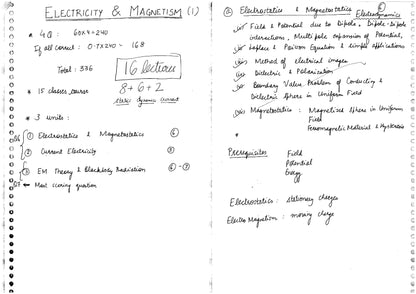 ELECTRICITY & MAGNETISM (1)
* 4Q : 60x4 = 240
If all correct : 0.7x240 = 168
Total : 336
16 lectures
8 + 6 + 2
static dynamic current
* 15 classes course
* 3 units :
① Electrostatics & Magnetostatics ⑥
② Current Electricity
③ EM Theory & Blackbody Radiation ⑥ - ⑦
← Most scoring question
Electrostatics & Magnetostatics
Electrodynamics
Field & Potential due to Dipole, Dipole-Dipole
interactions, Multipole expansion of Potential,
Laplace & Poisson Equation & simple applications
Method of electrical images
Dielectric & Polarization
Boundary Value Problem of Conducting &
Dielectric Sphere in Uniform Field
Magnetostatics : Magnetised Sphere in Uniform
Field
Ferromagnetic Material & Hysteresis
Prerequisites
Field
Potential
Energy
Electrostatics : stationary charges
Electro Magnetism : moving charge